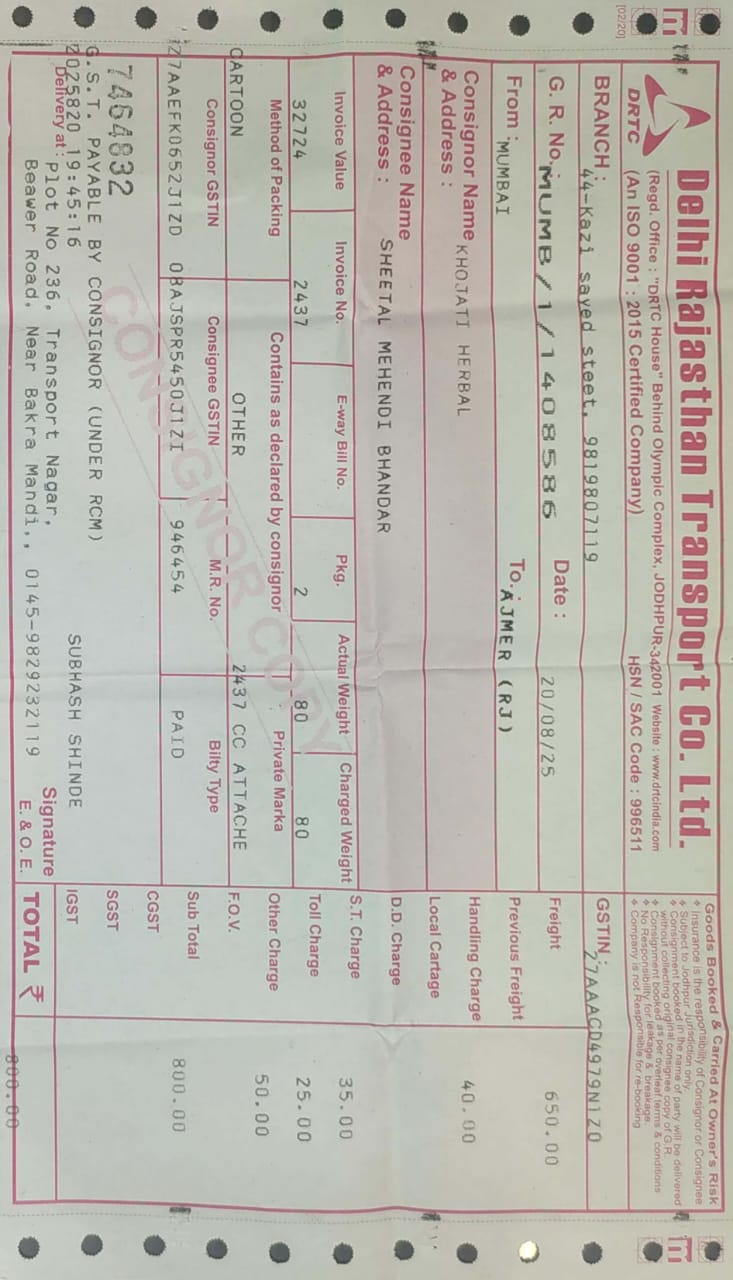 [02/20]
Delhi Rajasthan Transport Co. Ltd.
DRTC
(Regd. Office : "DRTC House" Behind Olympic Complex, JODHPUR-342001 Website : www.drtcindia.com
(An ISO 9001 : 2015 Certified Company) HSN / SAC Code : 996511
Goods Booked & Carried At Owner's Risk
Insurance is the responsibility of Consignor or Consignee
Subject to Jodhpur Jurisdiction only.
Consignment booked in the name of party will be delivered
without collecting original consignee copy of G.R.
Consignment booked as per overleaf terms & conditions
No Responsibility for leakage & breakage.
Company is not Responsible for re-booking
BRANCH : 44-Kazi sayed steet, 9819807119
GSTIN : 27AAACD4979N1Z0
G. R. No. : MUMB/1/1408586 Date : 20/08/25
Freight 650.00
From : MUMBAI To : AJMER (RJ)
Previous Freight
Consignor Name KHOJATI HERBAL
& Address :
Handling Charge 40.00
Local Cartage
Consignee Name SHEETAL MEHENDI BHANDAR
& Address :
D.D. Charge
Invoice Value Invoice No. E-way Bill No. Pkg. Actual Weight Charged Weight
S.T. Charge 35.00
32724 2437 2 80 80
Toll Charge 25.00
Method of Packing Contains as declared by consignor Private Marka
Other Charge 50.00
CARTOON OTHER 2437 CC ATTACHE
F.O.V.
Consignor GSTIN Consignee GSTIN M.R. No. Bilty Type
Sub Total 800.00
27AAEFK0652J1ZD 08AJSPR5450J1ZI 946454 PAID
CGST
7464832
SGST
G.S.T. PAYABLE BY CONSIGNOR (UNDER RCM)
2025820 19:45:16 SUBHASH SHINDE
IGST
Delivery at : Plot No 236, Transport Nagar,
Signature
Beawer Road, Near Bakra Mandi,, 0145-9829232119
E. & O. E.
TOTAL ₹ 800.00
CONSIGNOR COPY